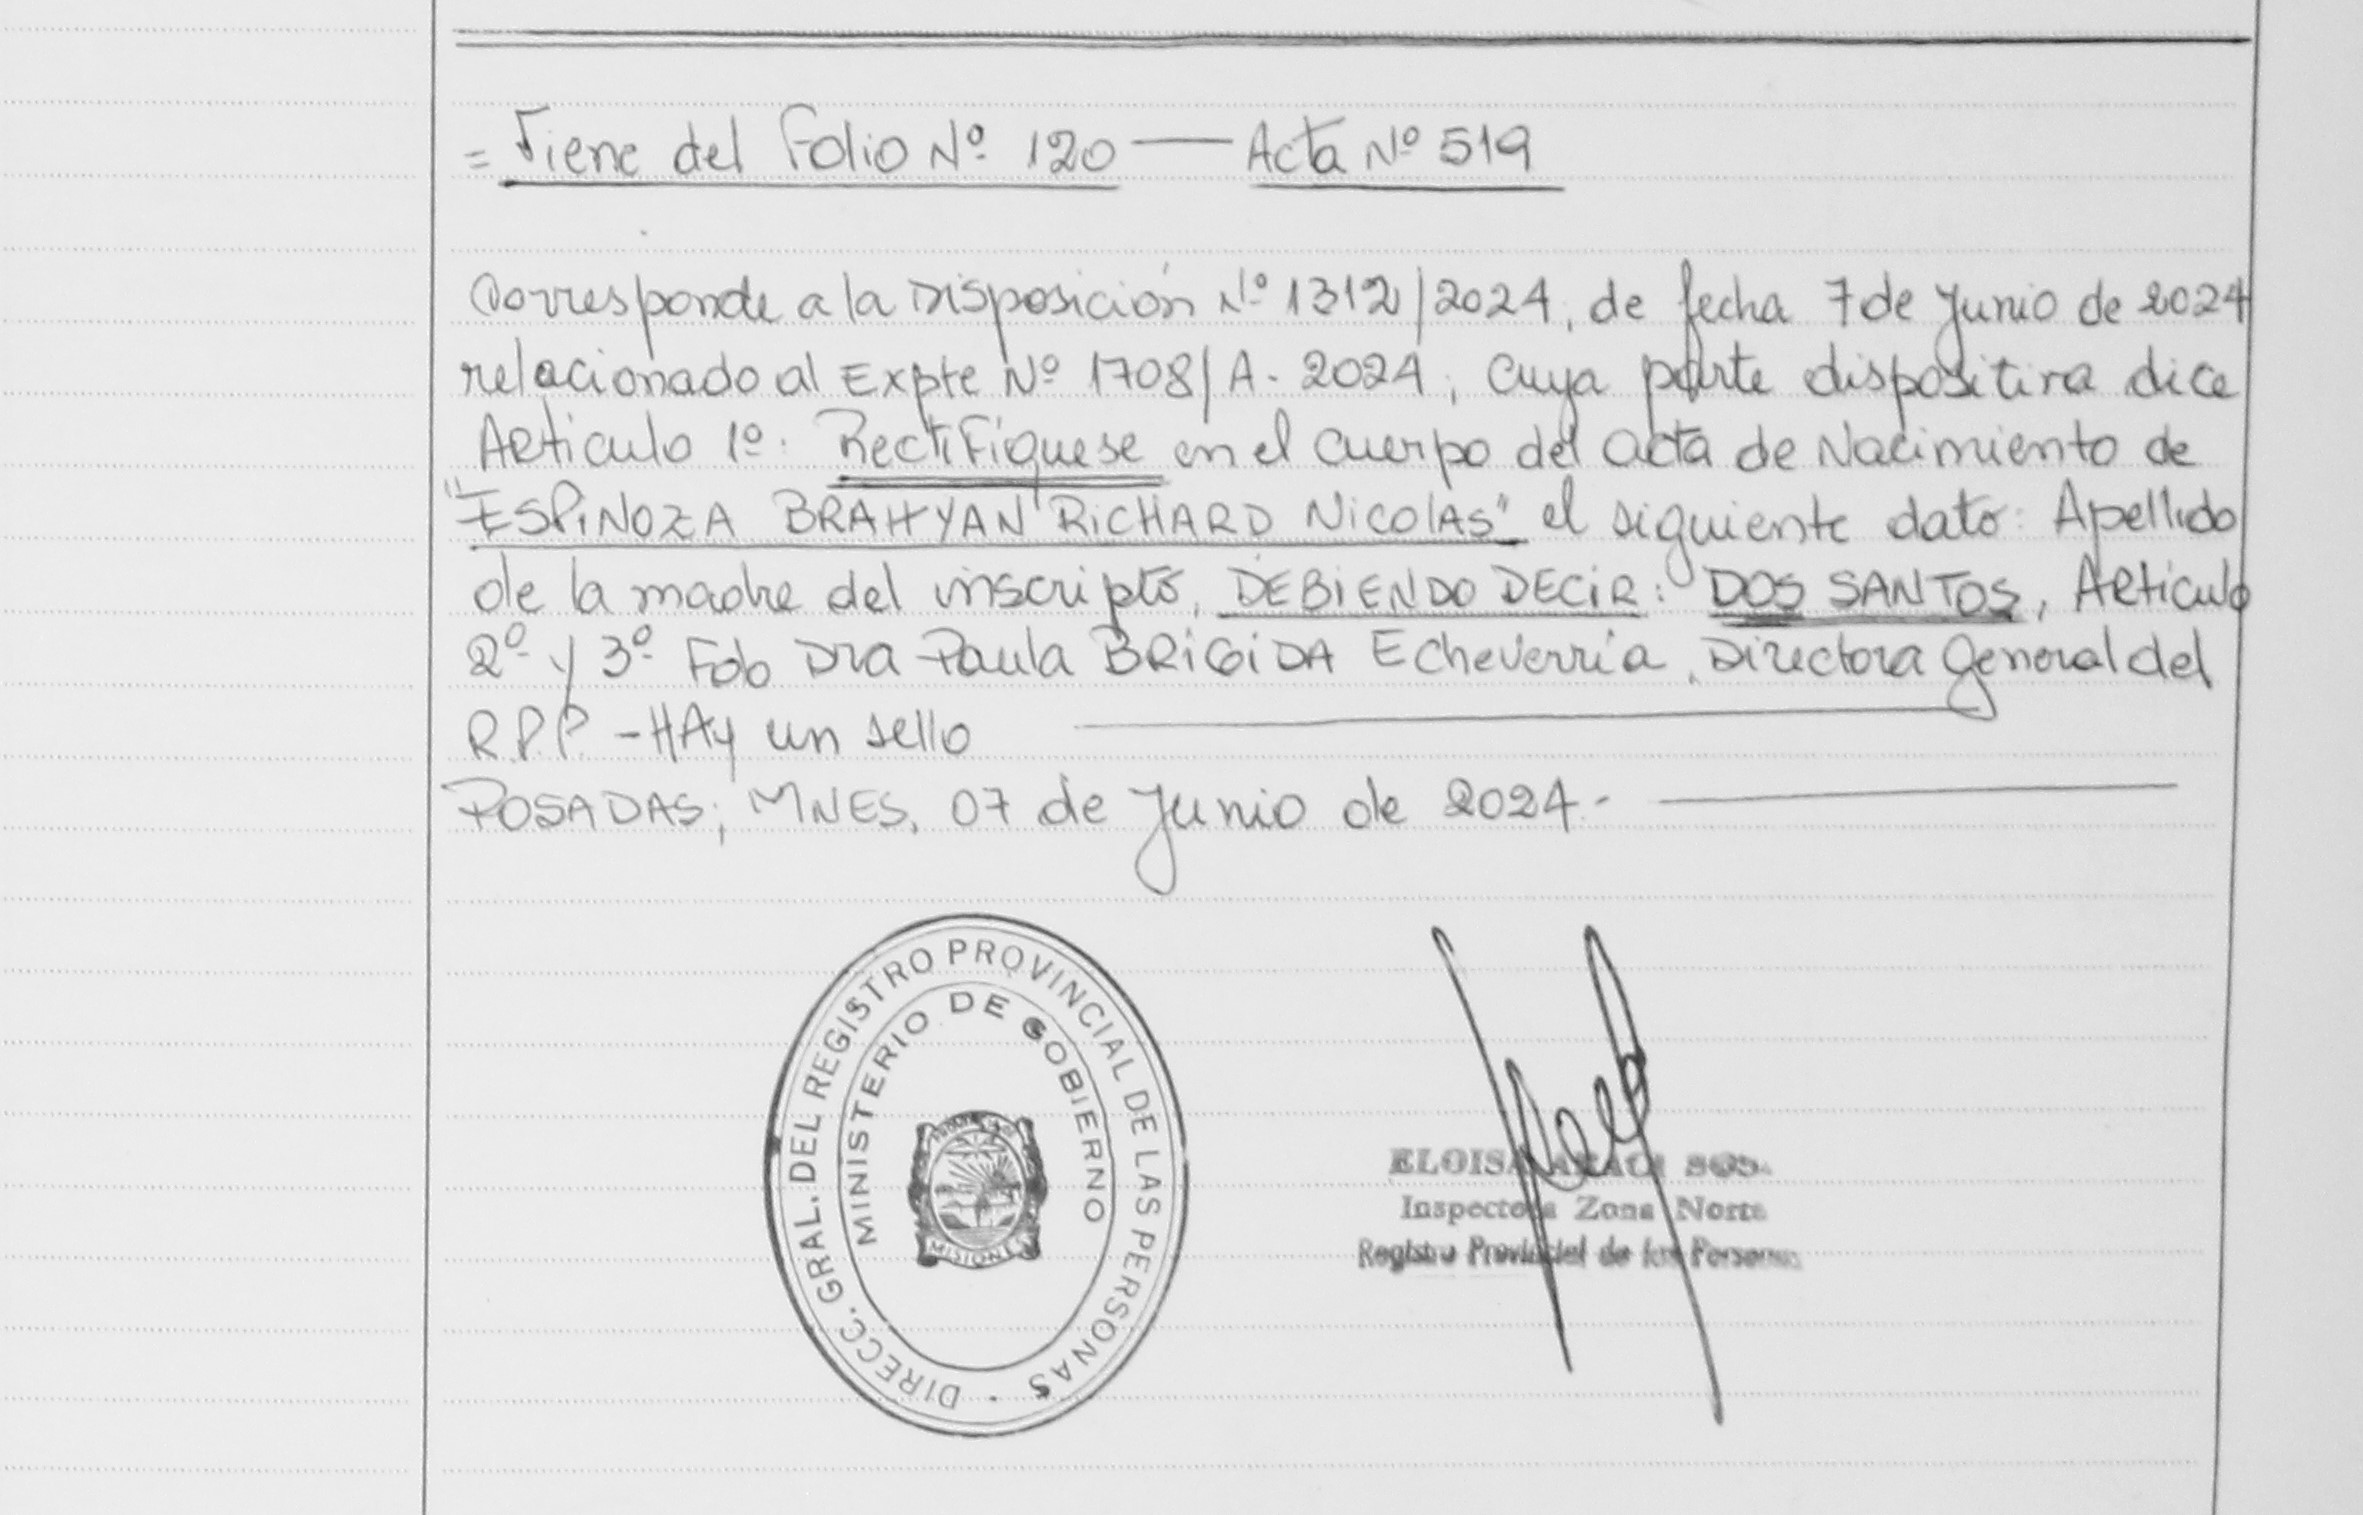 = Viene del Folio Nº 120 — Acta Nº 519
Corresponde a la Disposición Nº 1312/2024, de fecha 7 de Junio de 2024
relacionado al Expte Nº 1708/A-2024; cuya parte dispositiva dice
Articulo 1º: Rectifíquese en el cuerpo del acta de Nacimiento de
"ESPINOZA BRAHYAN RICHARD NICOLAS" el siguiente dato: Apellido
de la madre del inscripto, DEBIENDO DECIR: DOS SANTOS, Articulo
2º y 3º Fdo Dra Paula BRIGIDA Echeverría, Directora General del
R.P.P. - HAy un sello
POSADAS; MNES, 07 de Junio de 2024.-
DIRECC. GRAL. DEL REGISTRO PROVINCIAL DE LAS PERSONAS
MINISTERIO DE GOBIERNO
MISIONES
ELOISA
Inspectora Zona Norte
Registro Provincial de las Personas